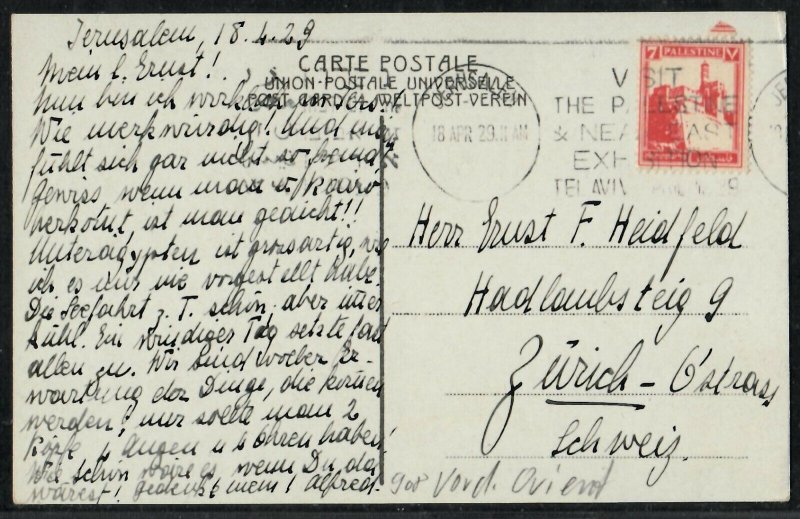 Jerusalem, 18.4.29
Mein l. Ernst!
Nun bin ich
Wie merkwürdig! Und man
fühlt sich gar nicht so fremd
Gewiss wenn man v/ Kairo
herkomt, ist man geaicht!!
Unterägypten ist grossartig, wie
ich es mir nie vorgestellt habe.
Die Seefahrt z. T. schön, aber immer
kühl. Ein windiger Tag setzte fast
allen zu. Wir sind voller Er-
wartung der Dinge, die kommen
werden; nur sollte man 2
Köpfe 4 Augen u 4 Ohren haben!
Wie schön wäre es wenn Du da
wärest! Alfred.
CARTE POSTALE
UNION POSTALE UNIVERSELLE
POST CARD WELTPOST-VEREIN
18 APR 29 11 AM
VISIT
THE PALESTINE
& NEAR EAST
EXHIBITION
TEL AVIV
7 PALESTINE ٧
Herr Ernst F. Heidfeld
Hadlaubsteig 9
Zürich - 6
Schweiz.
900 Vord. Orient